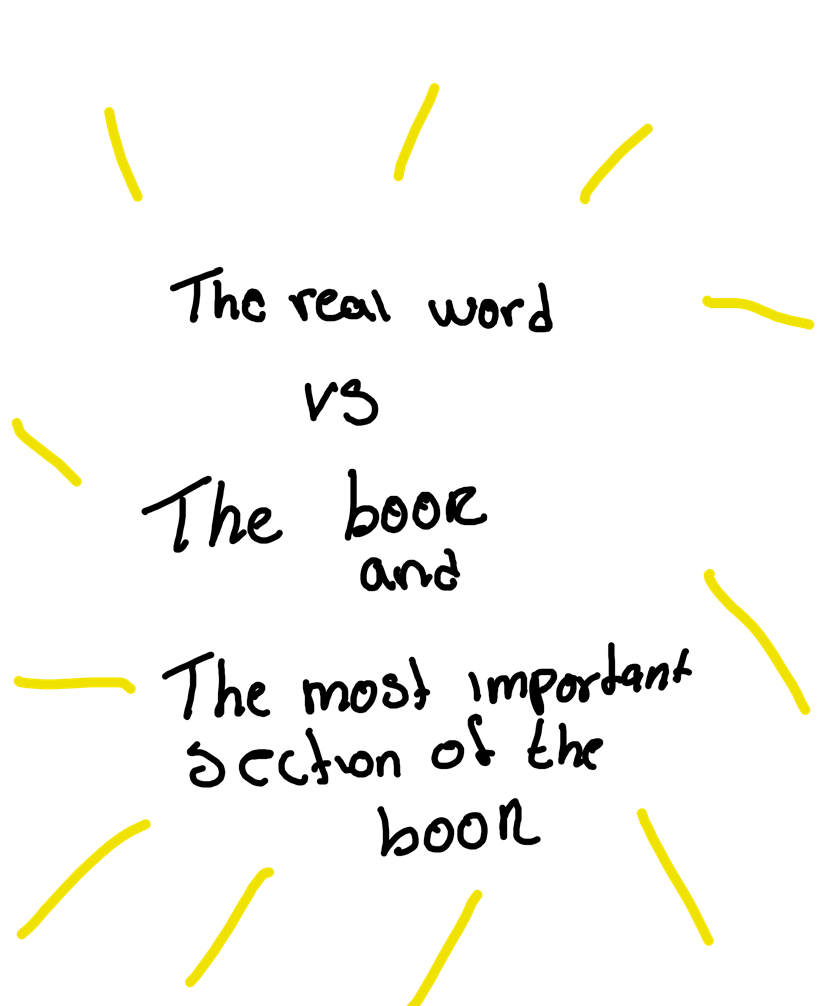 The real word
vs
The book
and
The most important
section of the
book